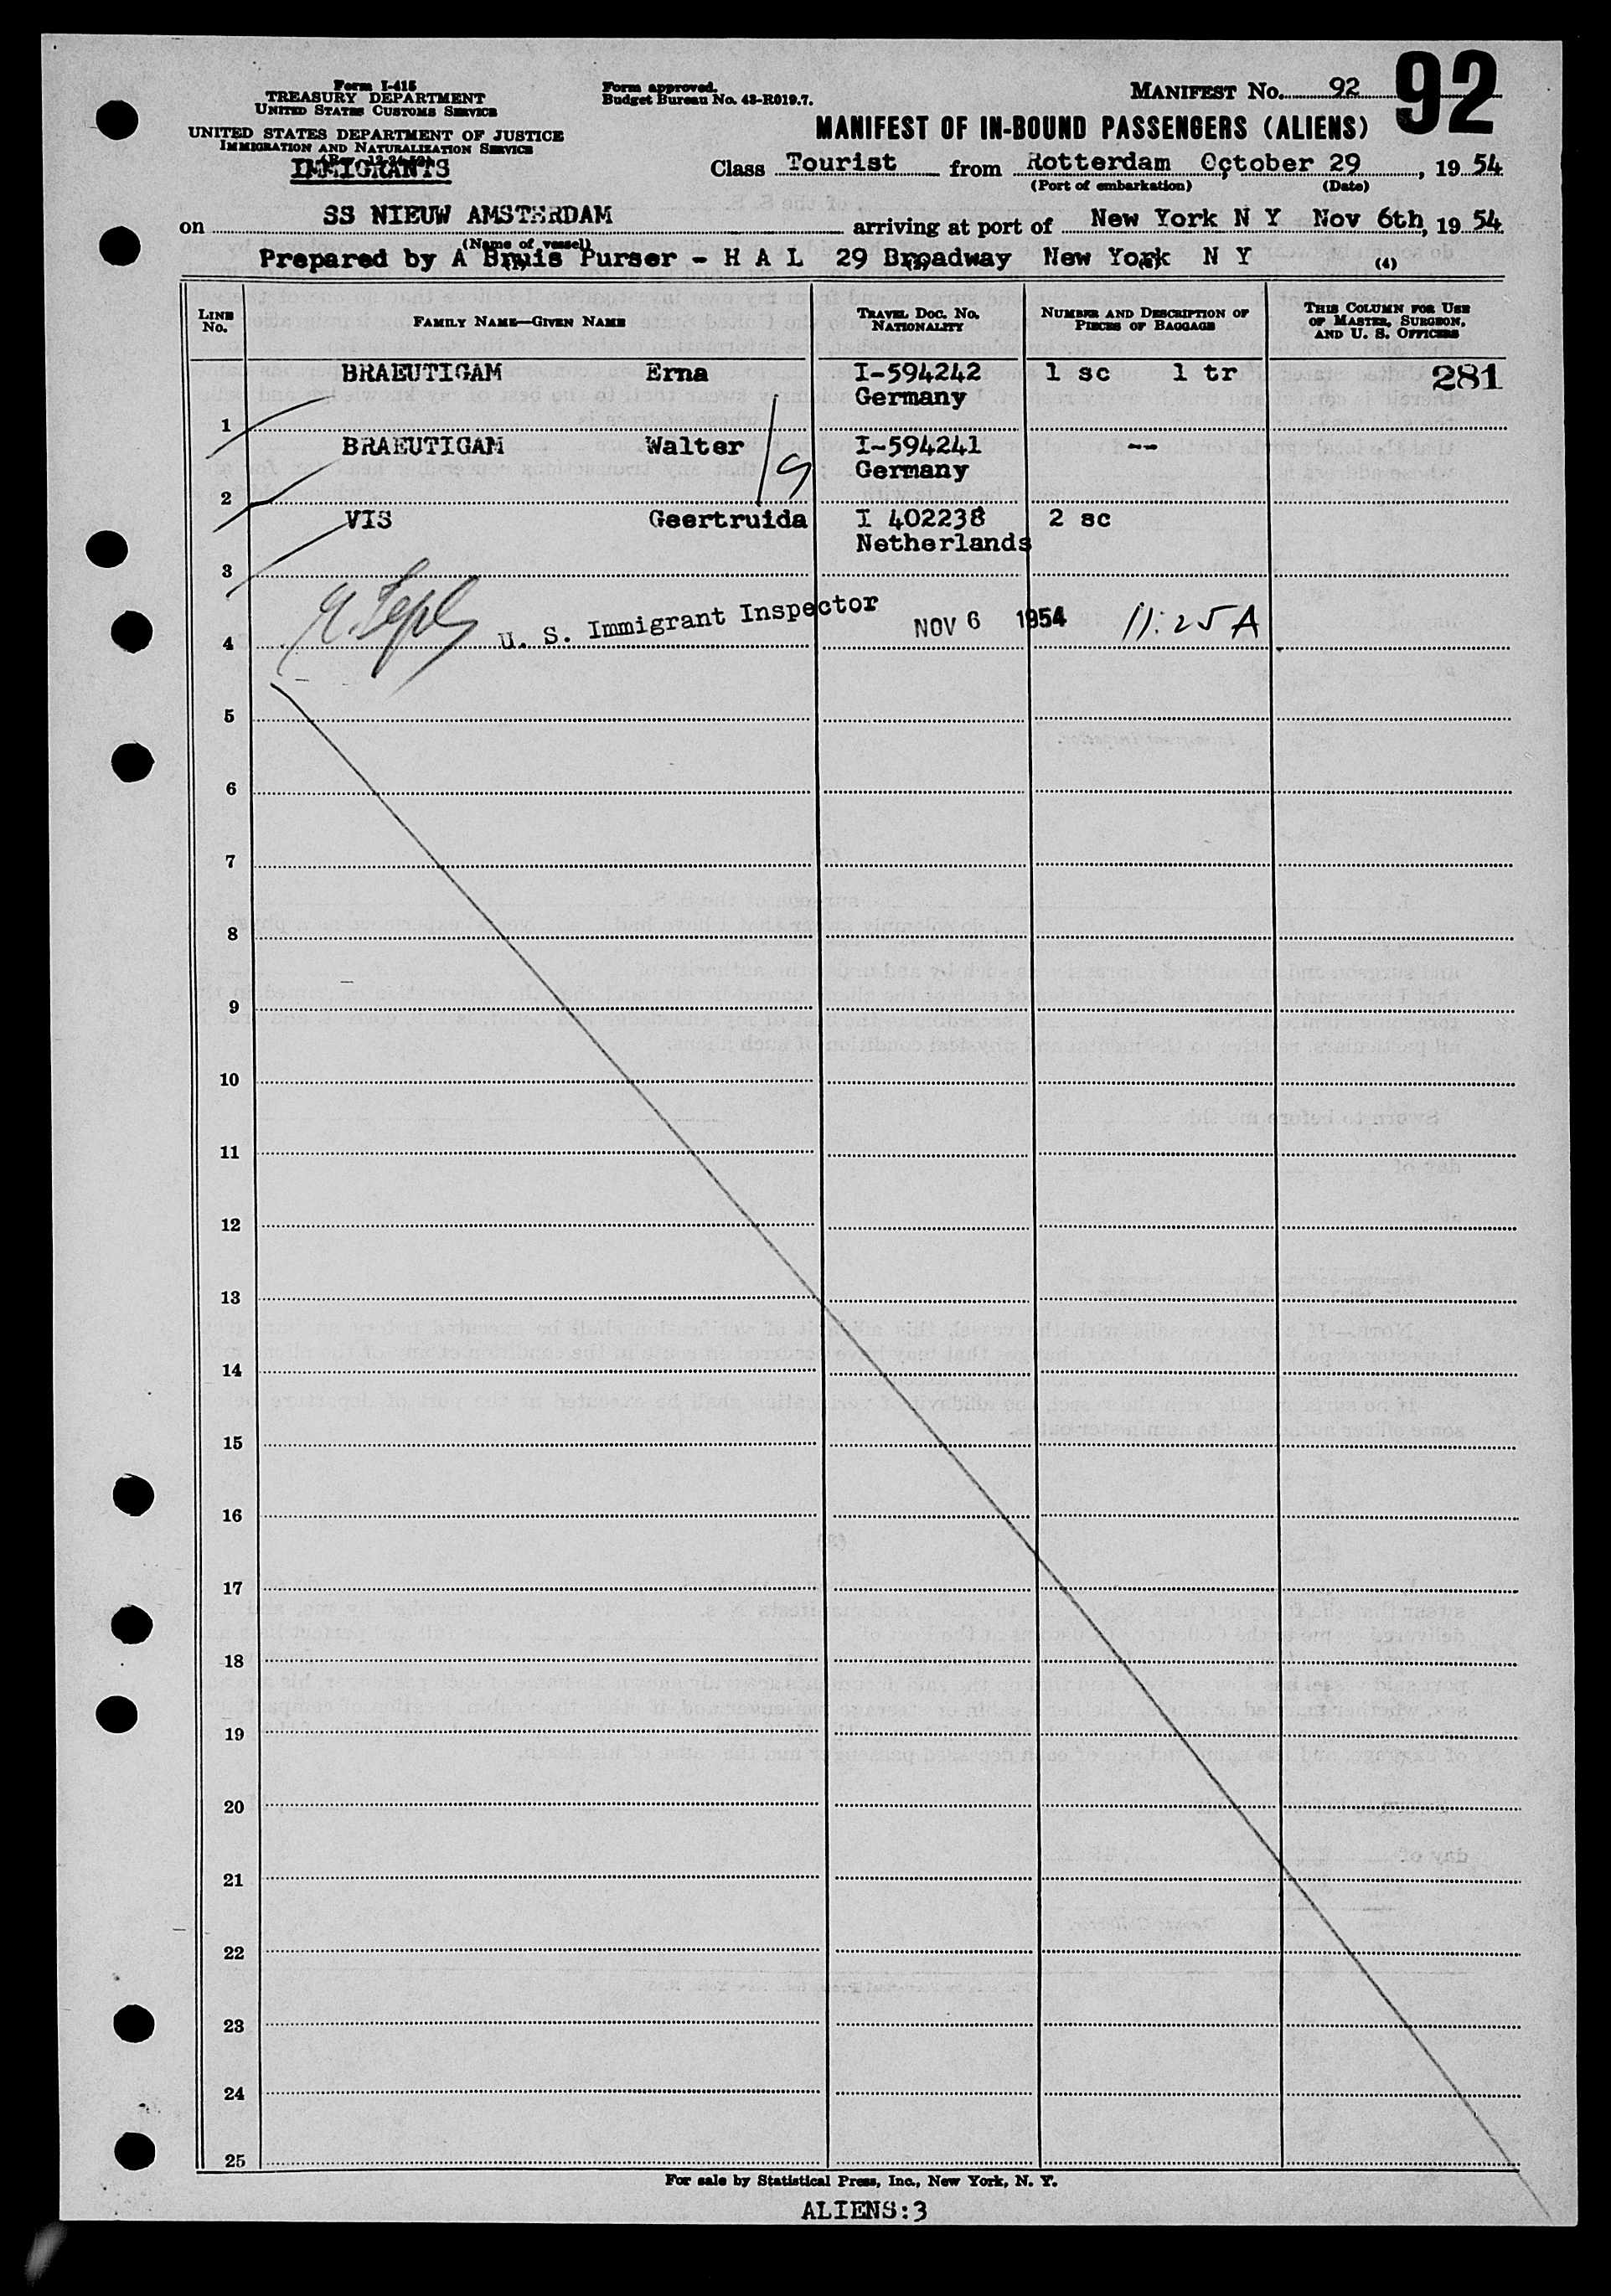 Form I-415
TREASURY DEPARTMENT
UNITED STATES CUSTOMS SERVICE
UNITED STATES DEPARTMENT OF JUSTICE
IMMIGRATION AND NATURALIZATION SERVICE
IMMIGRANTS
Form approved.
Budget Bureau No. 43-R019.7.
MANIFEST No. 92
92
MANIFEST OF IN-BOUND PASSENGERS (ALIENS)
Class Tourist from Rotterdam October 29, 1954
(Port of embarkation) (Date)
on SS NIEUW AMSTERDAM arriving at port of New York N Y Nov 6th, 1954
(Name of vessel)
Prepared by A Bruis Purser - H A L 29 Broadway New York N Y
(4)
LINE No. FAMILY NAME—GIVEN NAME TRAVEL DOC. NO. NATIONALITY NUMBER AND DESCRIPTION OF PIECES OF BAGGAGE THIS COLUMN FOR USE OF MASTER, SURGEON, AND U. S. OFFICERS
BRAEUTIGAM Erna I-594242 1 sc 1 tr 281
Germany
1
BRAEUTIGAM Walter I-594241 --
Germany
2
VIS Geertruida I 402238 2 sc
Netherlands
3
U. S. Immigrant Inspector NOV 6 1954 11:25 A
4
5
6
7
8
9
10
11
12
13
14
15
16
17
18
19
20
21
22
23
24
25
For sale by Statistical Press, Inc., New York, N. Y.
ALIENS:3